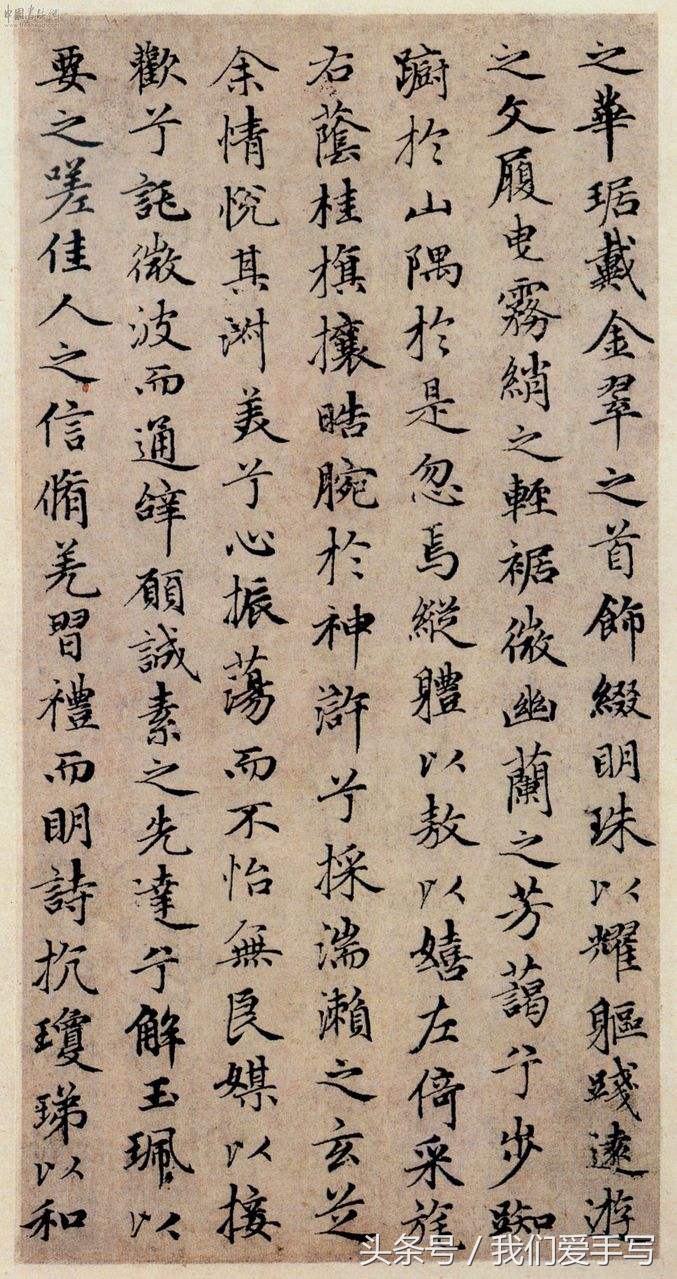 之華琚戴金翠之首飾綴明珠以耀軀踐遠游
之文履曳霧綃之輕裾微幽蘭之芳藹兮步踟
蹰於山隅於是忽焉縱體以敖以嬉左倚采旄
右蔭桂旗攘皓腕於神滸兮採湍瀨之玄芝
余情悅其淑美兮心振蕩而不怡無良媒以接
歡兮託微波而通辭願誠素之先達兮解玉珮以
要之嗟佳人之信脩羌習禮而明詩抗瓊珶以和
中國書法網
头条号 / 我们爱手写